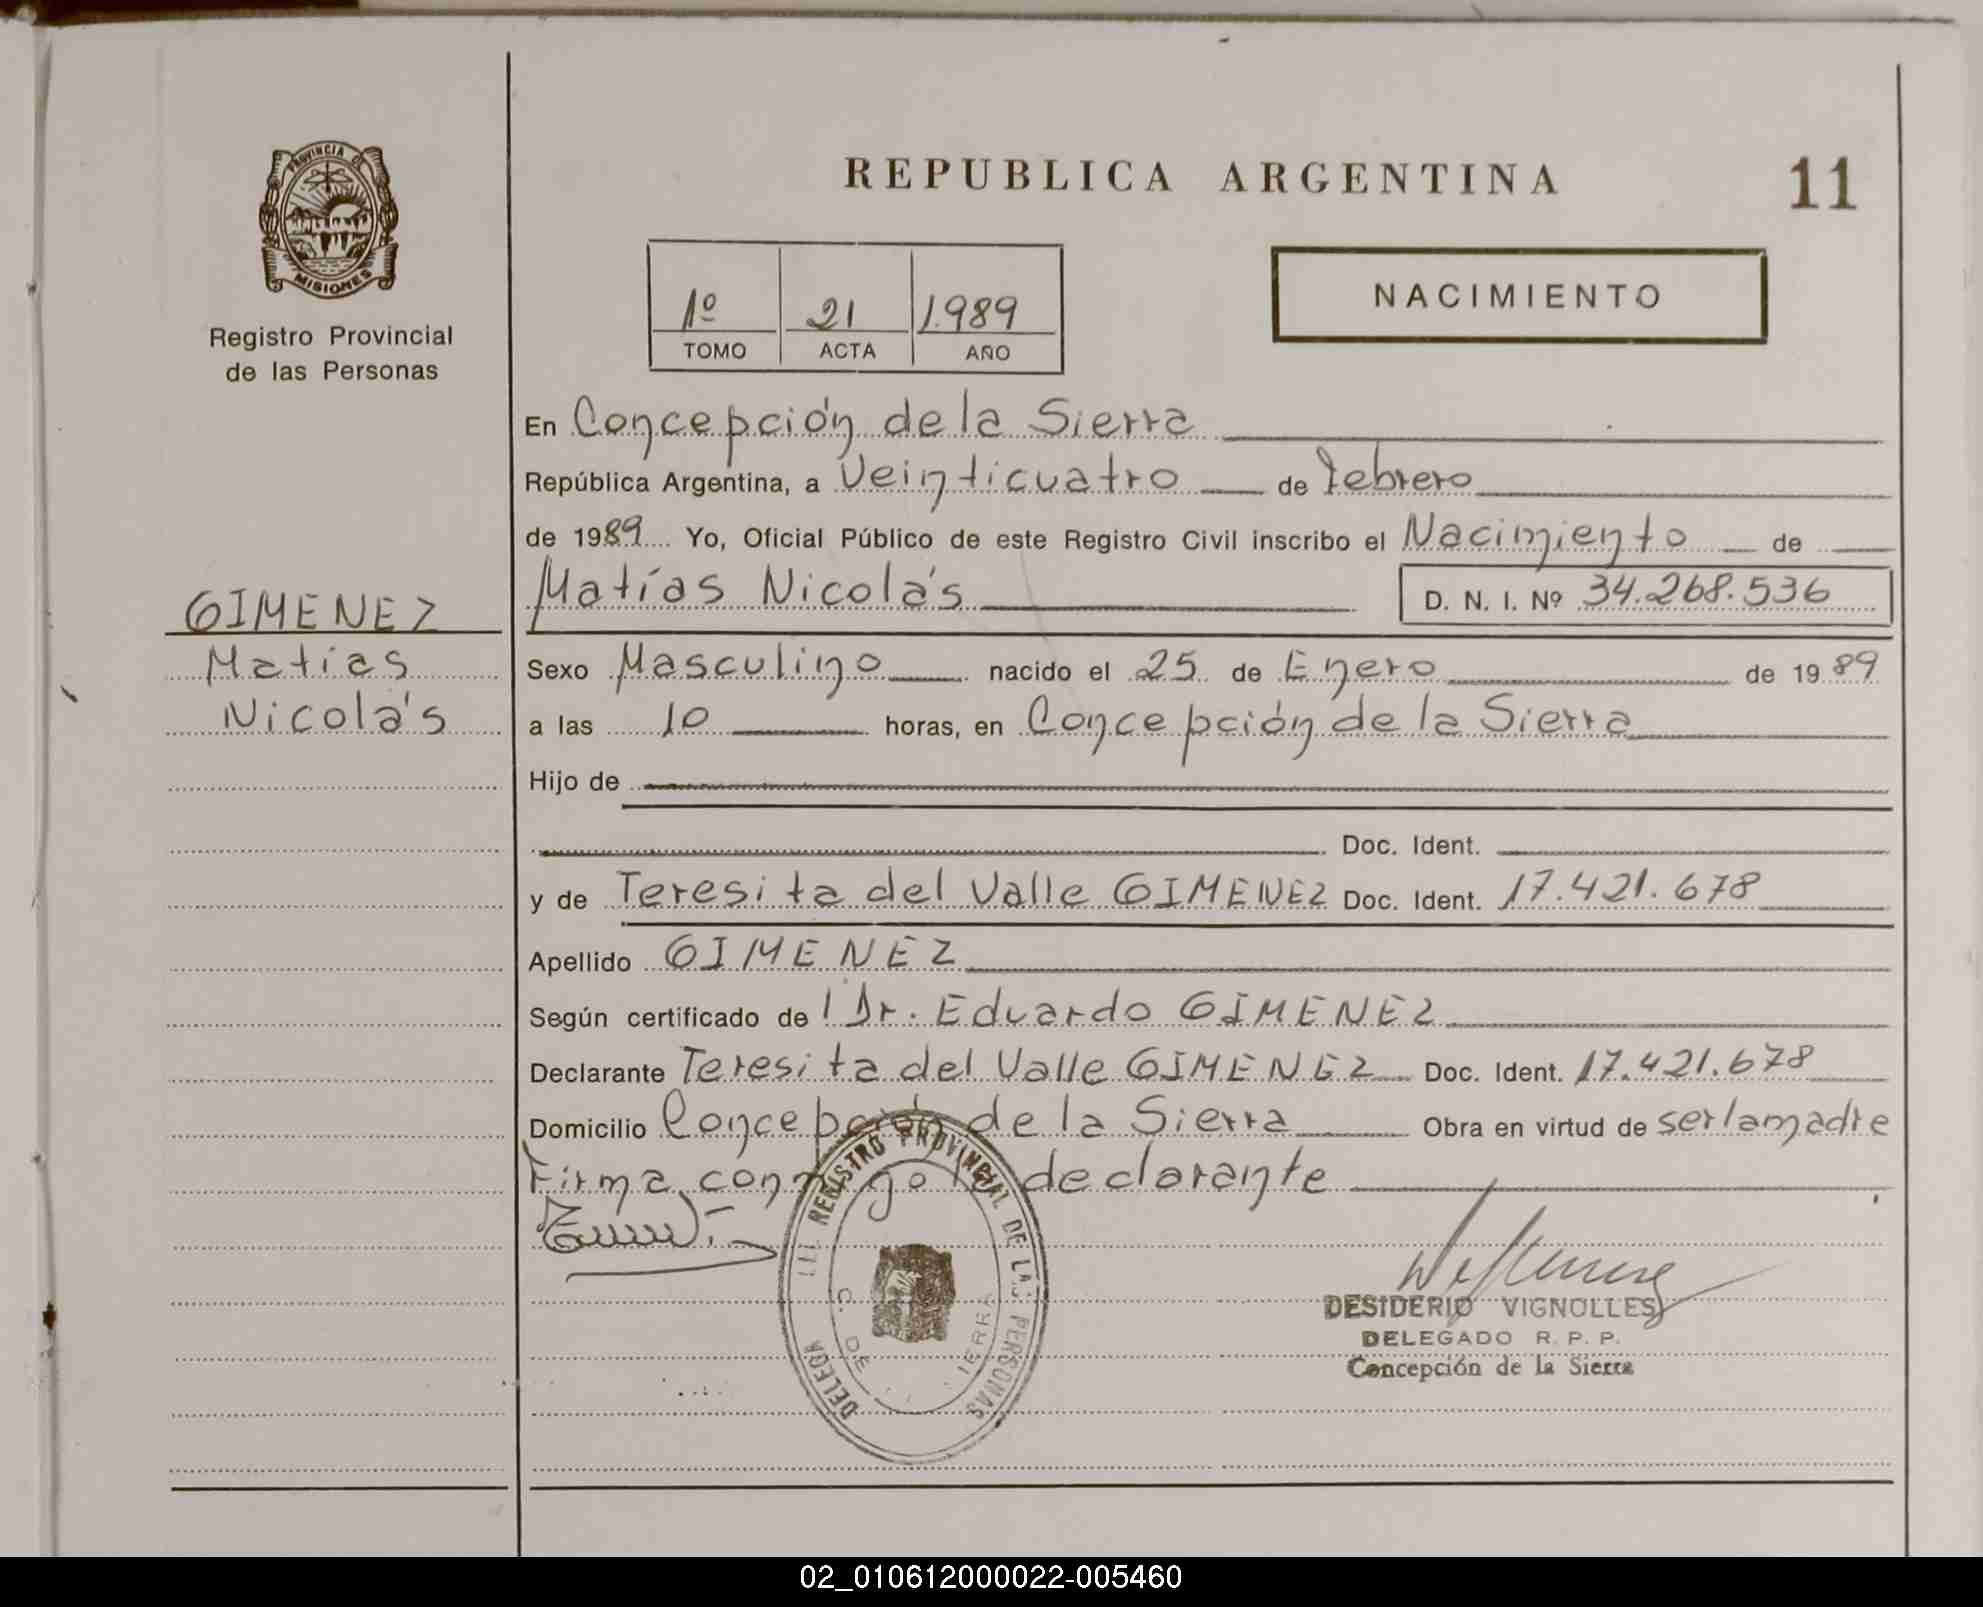 PROVINCIA DE
MISIONES
Registro Provincial
de las Personas
GIMENEZ
Matías
Nicolás
REPUBLICA ARGENTINA
11
1º 21 1.989
TOMO ACTA AÑO
NACIMIENTO
En Concepción de la Sierra
República Argentina, a Veinticuatro de Febrero
de 1989 Yo, Oficial Público de este Registro Civil inscribo el Nacimiento de
Matías Nicolás D. N. I. Nº 34.268.536
Sexo Masculino nacido el 25 de Enero de 1989
a las 10 horas, en Concepción de la Sierra
Hijo de
Doc. Ident.
y de Teresita del Valle GIMENEZ Doc. Ident. 17.421.678
Apellido GIMENEZ
Según certificado de l Dr. Eduardo GIMENEZ
Declarante Teresita del Valle GIMENEZ Doc. Ident. 17.421.678
Domicilio Concepción de la Sierra Obra en virtud de ser la madre
Firma conmigo la declarante
REGISTRO PROVINCIAL DE LAS PERSONAS
DESIDERIO VIGNOLLES
DELEGADO R. P. P.
Concepción de la Sierra
02_010612000022-005460